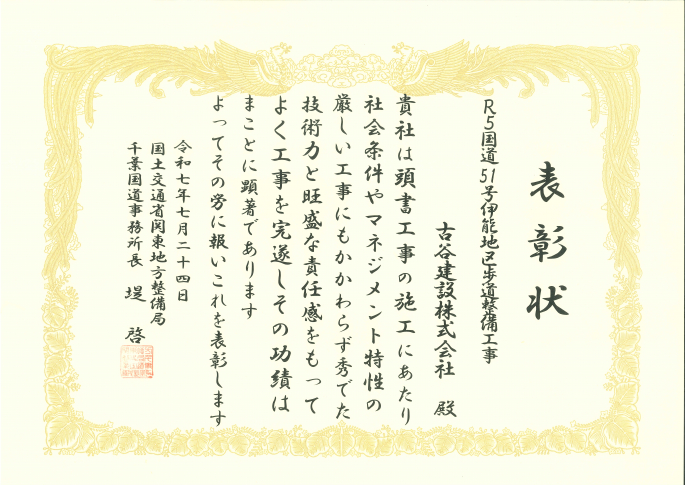 表彰状
R5国道51号伊能地区歩道整備工事
古谷建設株式会社 殿
貴社は頭書工事の施工にあたり
社会条件やマネジメント特性の
厳しい工事にもかかわらず秀でた
技術力と旺盛な責任感をもって
よく工事を完遂しその功績は
まことに顕著であります
よってその労に報いこれを表彰します
令和七年七月二十四日
国土交通省関東地方整備局
千葉国道事務所長 堤 啓